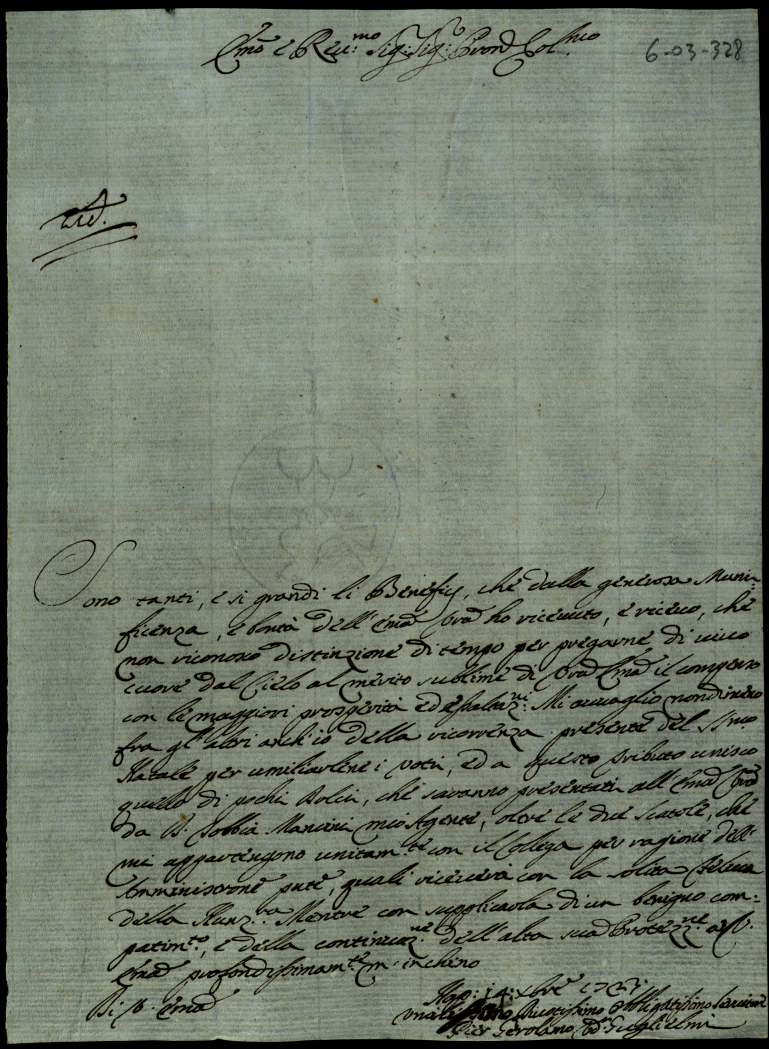 Em̃o e Reu:mo Sig: Sig: Pron Col.mo
6-03-328
Sono tanti, e si grandi li Beneficij, che dalla generosa Muni-
ficenza, e bontà dell'Em̃a Vr̃a ho riceuuto, e riceuo, che
non riconosco distinzione di tempo per pregarne di uiuo
cuore dal Cielo al merito sublime di Vr̃a Em̃a il compenso
con le maggiori prosperità ed esaltaz:ni Mi auuaglio nondimeno
fra gl'altri anch'io della ricorrenza presente del SS.mo
Natale per umiliarlene i voti, ed a questo tributo unisco
quello di pochi Dolci, che saranno presentati all'Em̃a Vr̃a
da Mancini mio Agente, oltre le due Scatole, che
mi appartengono unitam:te con il Collega per ragione dell'
Amministrone pnte, quali riceuerà con la solita
della Nunz:ra Mentre con supplicarla di un benigno com-
patim:to, e della continuaz:ne dell'alta sua Protez:ne a V.
Em̃a profondissimam:te m'inchino
Di V. Em̃a
Nap: 14: Xbre
Diuotissimo Obligatissimo Seruitore
Pier Gerolamo Guglielmi